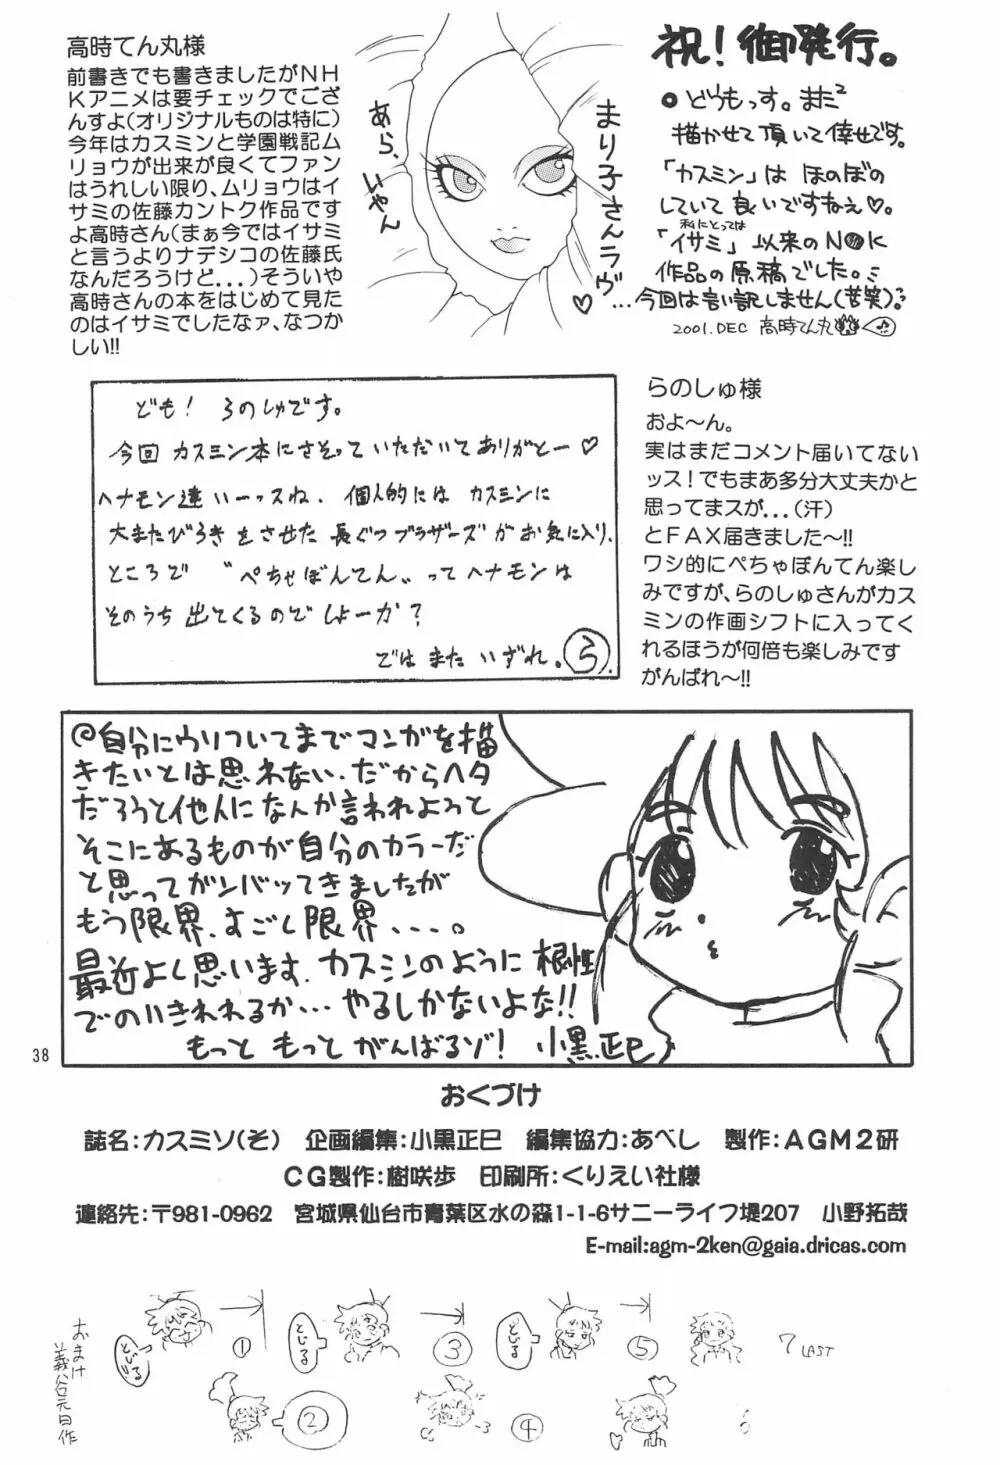 高時てん丸様
前書きでも書きましたがNH
Kアニメは要チェックでござ
んすよ(オリジナルものは特に)
今年はカスミンと学園戦記ム
リョウが出来が良くてファン
はうれしい限り、ムリョウはイ
サミの佐藤カントク作品です
よ高時さん(まぁ今ではイサミ
と言うよりナデシコの佐藤氏
なんだろうけど...)そういや
高時さんの本をはじめて見た
のはイサミでしたなァ、なつか
しい!!
あら、
いやん
まり子さんラヴ♡
祝!御発行。
●どうもっす。また
描かせて頂いて倖せです。
「カスミン」は ほのぼの
していて良いですねぇ♡。
私にとっては
「イサミ」以来のN●K
作品の原稿でした。
...今回は言い訳しません(苦笑)。
2001.DEC 高時てん丸
ども! らのしゅです。
今回 カスミン本にさそっていただいてありがとー♡
ヘナモン達いーッスね、個人的には カスミンに
大またびらきをさせた 長ぐつブラザーズがお気に入り。
ところで "ぺちゃぽんてん"ってヘナモンは
そのうち出てくるのでしょーか?
ではまたいずれ。ら.
らのしゅ様
およ〜ん。
実はまだコメント届いてない
ッス!でもまあ多分大丈夫かと
思ってまスが...(汗)
とFAX届きました〜!!
ワシ的にぺちゃぽんてん楽し
みですが、らのしゅさんがカス
ミンの作画シフトに入ってく
れるほうが何倍も楽しみです
がんばれ〜!!
@自分にウソついてまでマンガを描
きたいとは思わない。だからヘタ
だろうと他人になんか言われよっと
そこにあるものが自分のカラーだ
と思ってガンバッてきましたが
もう限界、すごし限界....。
最近よし思います。カスミンのように根性
でのりきれるか...やるしかないよな!!
もっと もっと がんばるゾ! 小黒正巳
38
おくづけ
誌名:カスミソ(そ) 企画編集:小黒正巳 編集協力:あべし 製作:AGM2研
CG製作:樹咲歩 印刷所:くりえい社様
連絡先:〒981-0962 宮城県仙台市青葉区水の森1-1-6サニーライフ堤207 小野拓哉
E-mail:agm-2ken@gaia.dricas.com
おまけ
義谷元日作
とじる
①
とじる
③
とじる
⑤
7 LAST
②
④
6